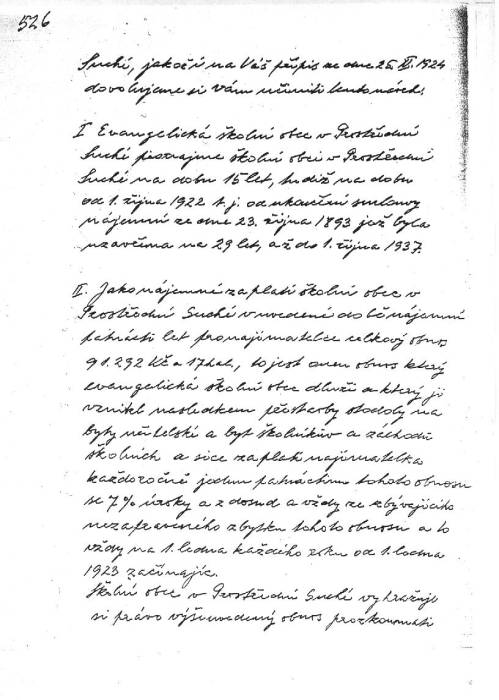 526
Suché, jakož i na Váš přípis ze dne 25. XI. 1924
dovolujeme si Vám učiniti tento návrh.
I Evangelická školní obec v Prostřední
Suché pronajme školní obci v Prostřední
Suché na dobu 15 let, tudíž na dobu
od 1. října 1922 t. j. od ukončení smlouvy
nájemní ze dne 23. října 1893 jež byla
uzavřena na 29 let, až do 1. října 1937.
II. Jako nájemné zaplatí školní obec v
Prostřední Suché v uvedené době nájemní
patnácti let pronajímatelce celkový obnos
91.292 Kč a 17 hal., to jest onen obnos který
evangelická školní obec dluží a který jí
vznikl následkem přístavby stodoly na
byty učitelské a byt školníkův a záchodů
školních a sice zaplatí nájematelka
každoročně jednu patnáctinu tohoto obnosu
se 7% úroky a z dosud a vždy ze zbývajícího
nezapraveného zbytku tohoto obnosu a to
vždy na 1. ledna každého roku od 1. ledna
1923 začínajíc.
Školní obec v Prostřední Suché vyhražuje
si právo výšeuvedený obnos prozkoumati